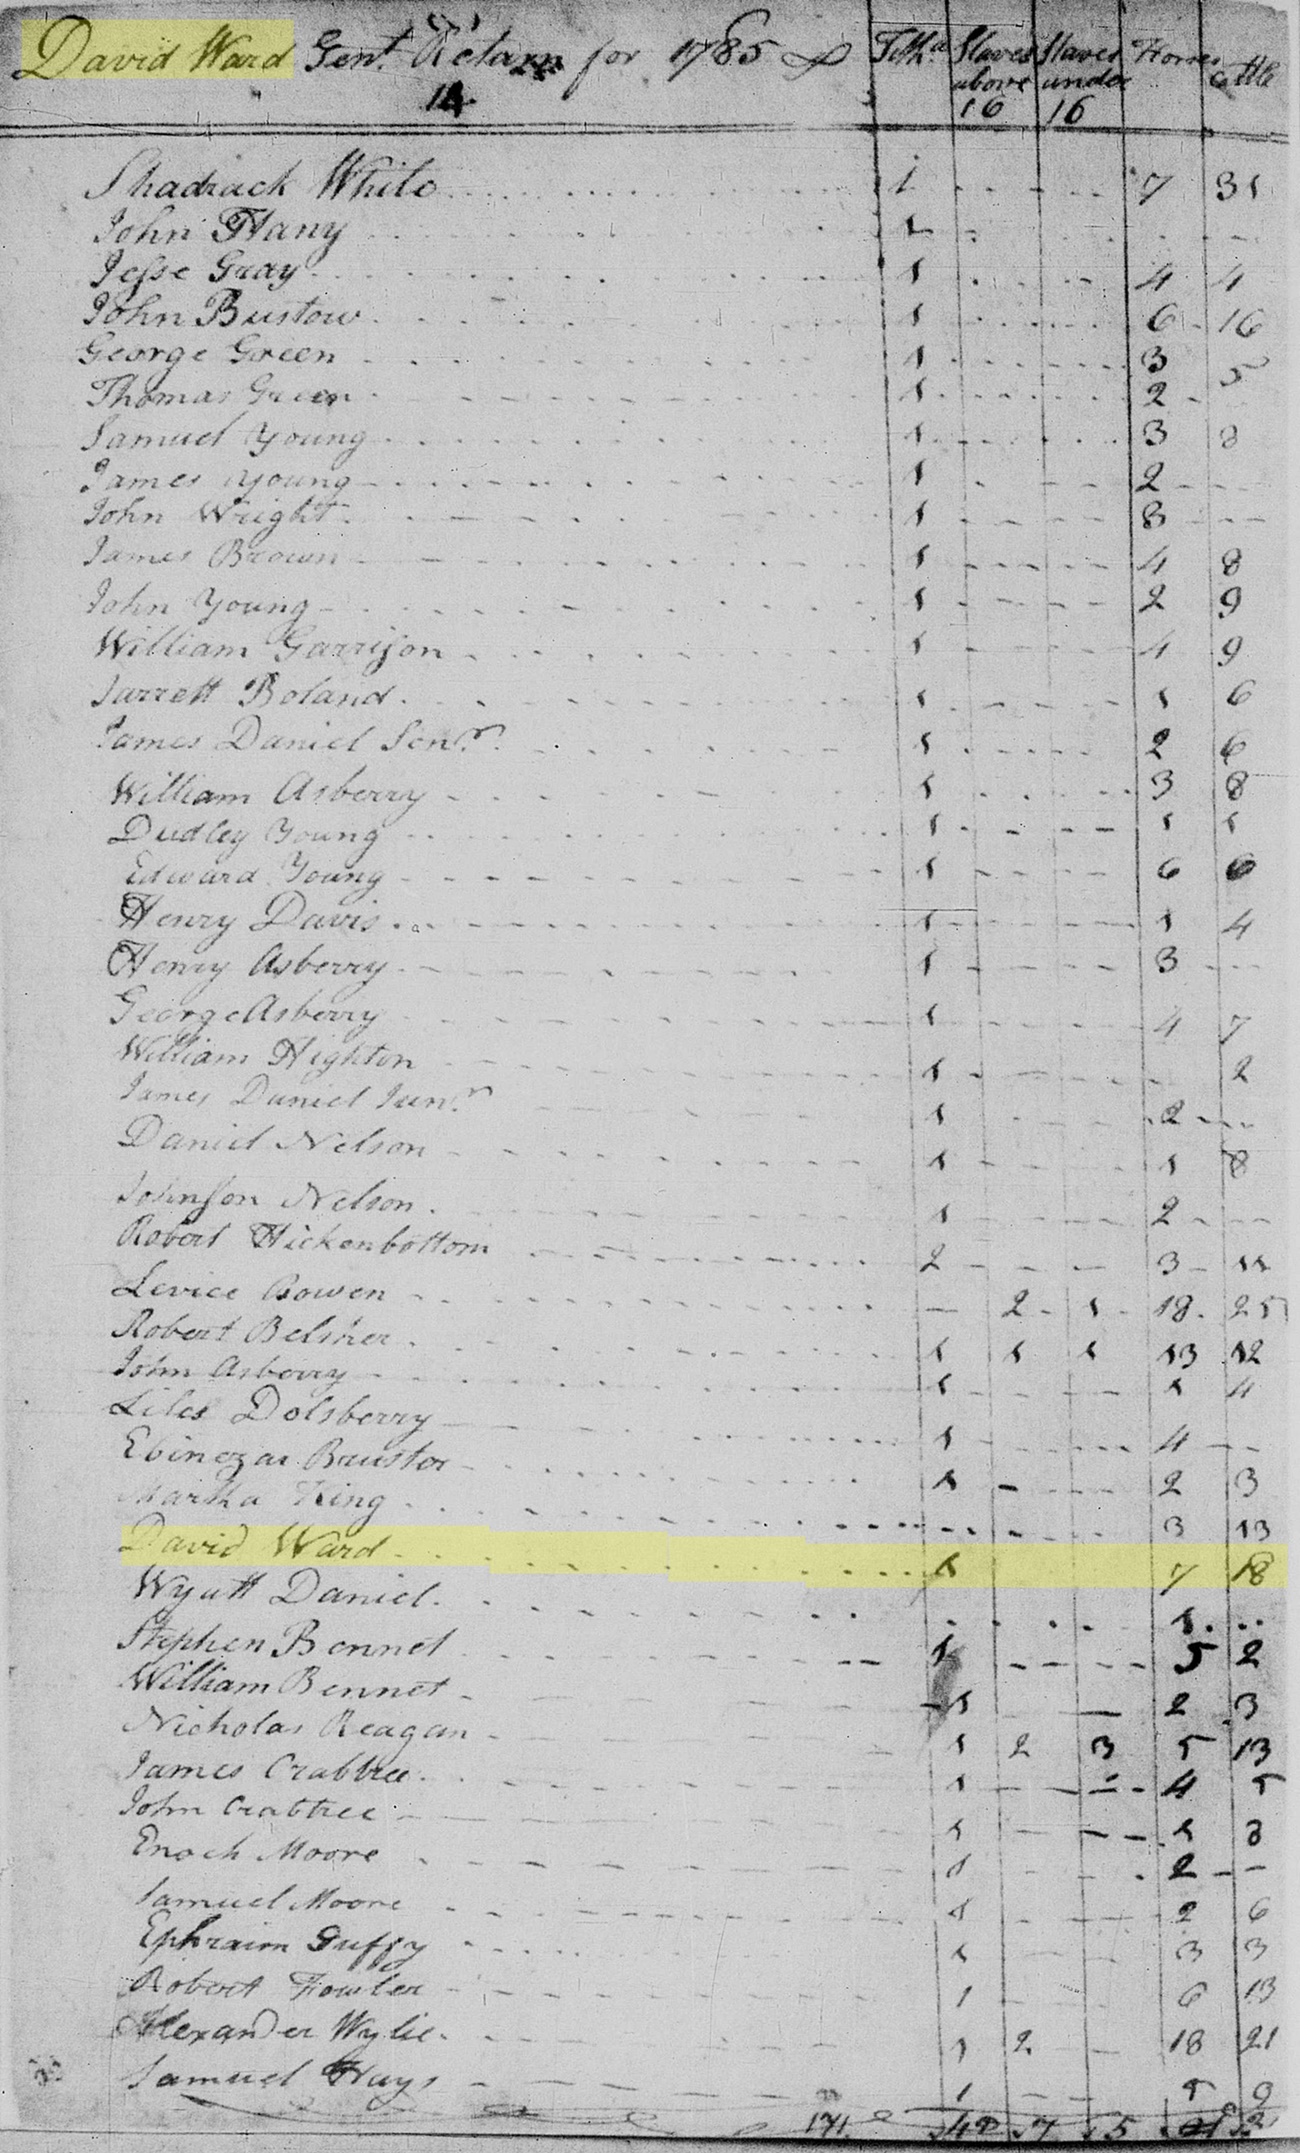 David Ward Gent. Return for 1785 Tith. Slaves above 16 Slaves under 16 Horses Cattle
14
Shadrack White 1 7 31
John Hany 1
Jesse Gray 1 4 4
John Bustow 1 6 16
George Green 1 3 5
Thomas Green 1 2
Samuel Young 1 3 8
James Young 1 2
John Wright 1 3
James Brown 1 4 8
John Young 1 2 9
William Garrison 1 4 9
Jarrett Boland 1 1 6
James Daniel Senr. 1 2 6
William Asberry 1 3 8
Dudley Young 1 1 1
Edward Young 1 6 6
Henry Davis 1 1 4
Henry Asberry 1 3
George Asberry 1 4 7
William Highton 1 2
James Daniel Junr. 1 2
Daniel Nelson 1 1 8
Johnson Nelson 1 2
Robert Hickenbottom 2 3 11
Levice Bowen 2 1 18 25
Robert Belsher 1 1 1 13 12
John Asberry 1 1 4
Liles Dolsberry 1 4
Ebinezar Bruster 1 2 3
Martha King 3 13
David Ward 1 7 18
Wyatt Daniel 1
Stephen Bennet 1 5 2
William Bennet 1 2 3
Nicholas Reagan 1 2 3 5 13
James Crabtree 1 4 5
John Crabtree 1 1 3
Enoch Moore 1 2
Samuel Moore 1 2 6
Ephraim Guffy 1 3 3
Robert Fowler 1 6 13
Alexander Wylie 1 2 18 21
Samuel Hays 1 9
171 42 7 5